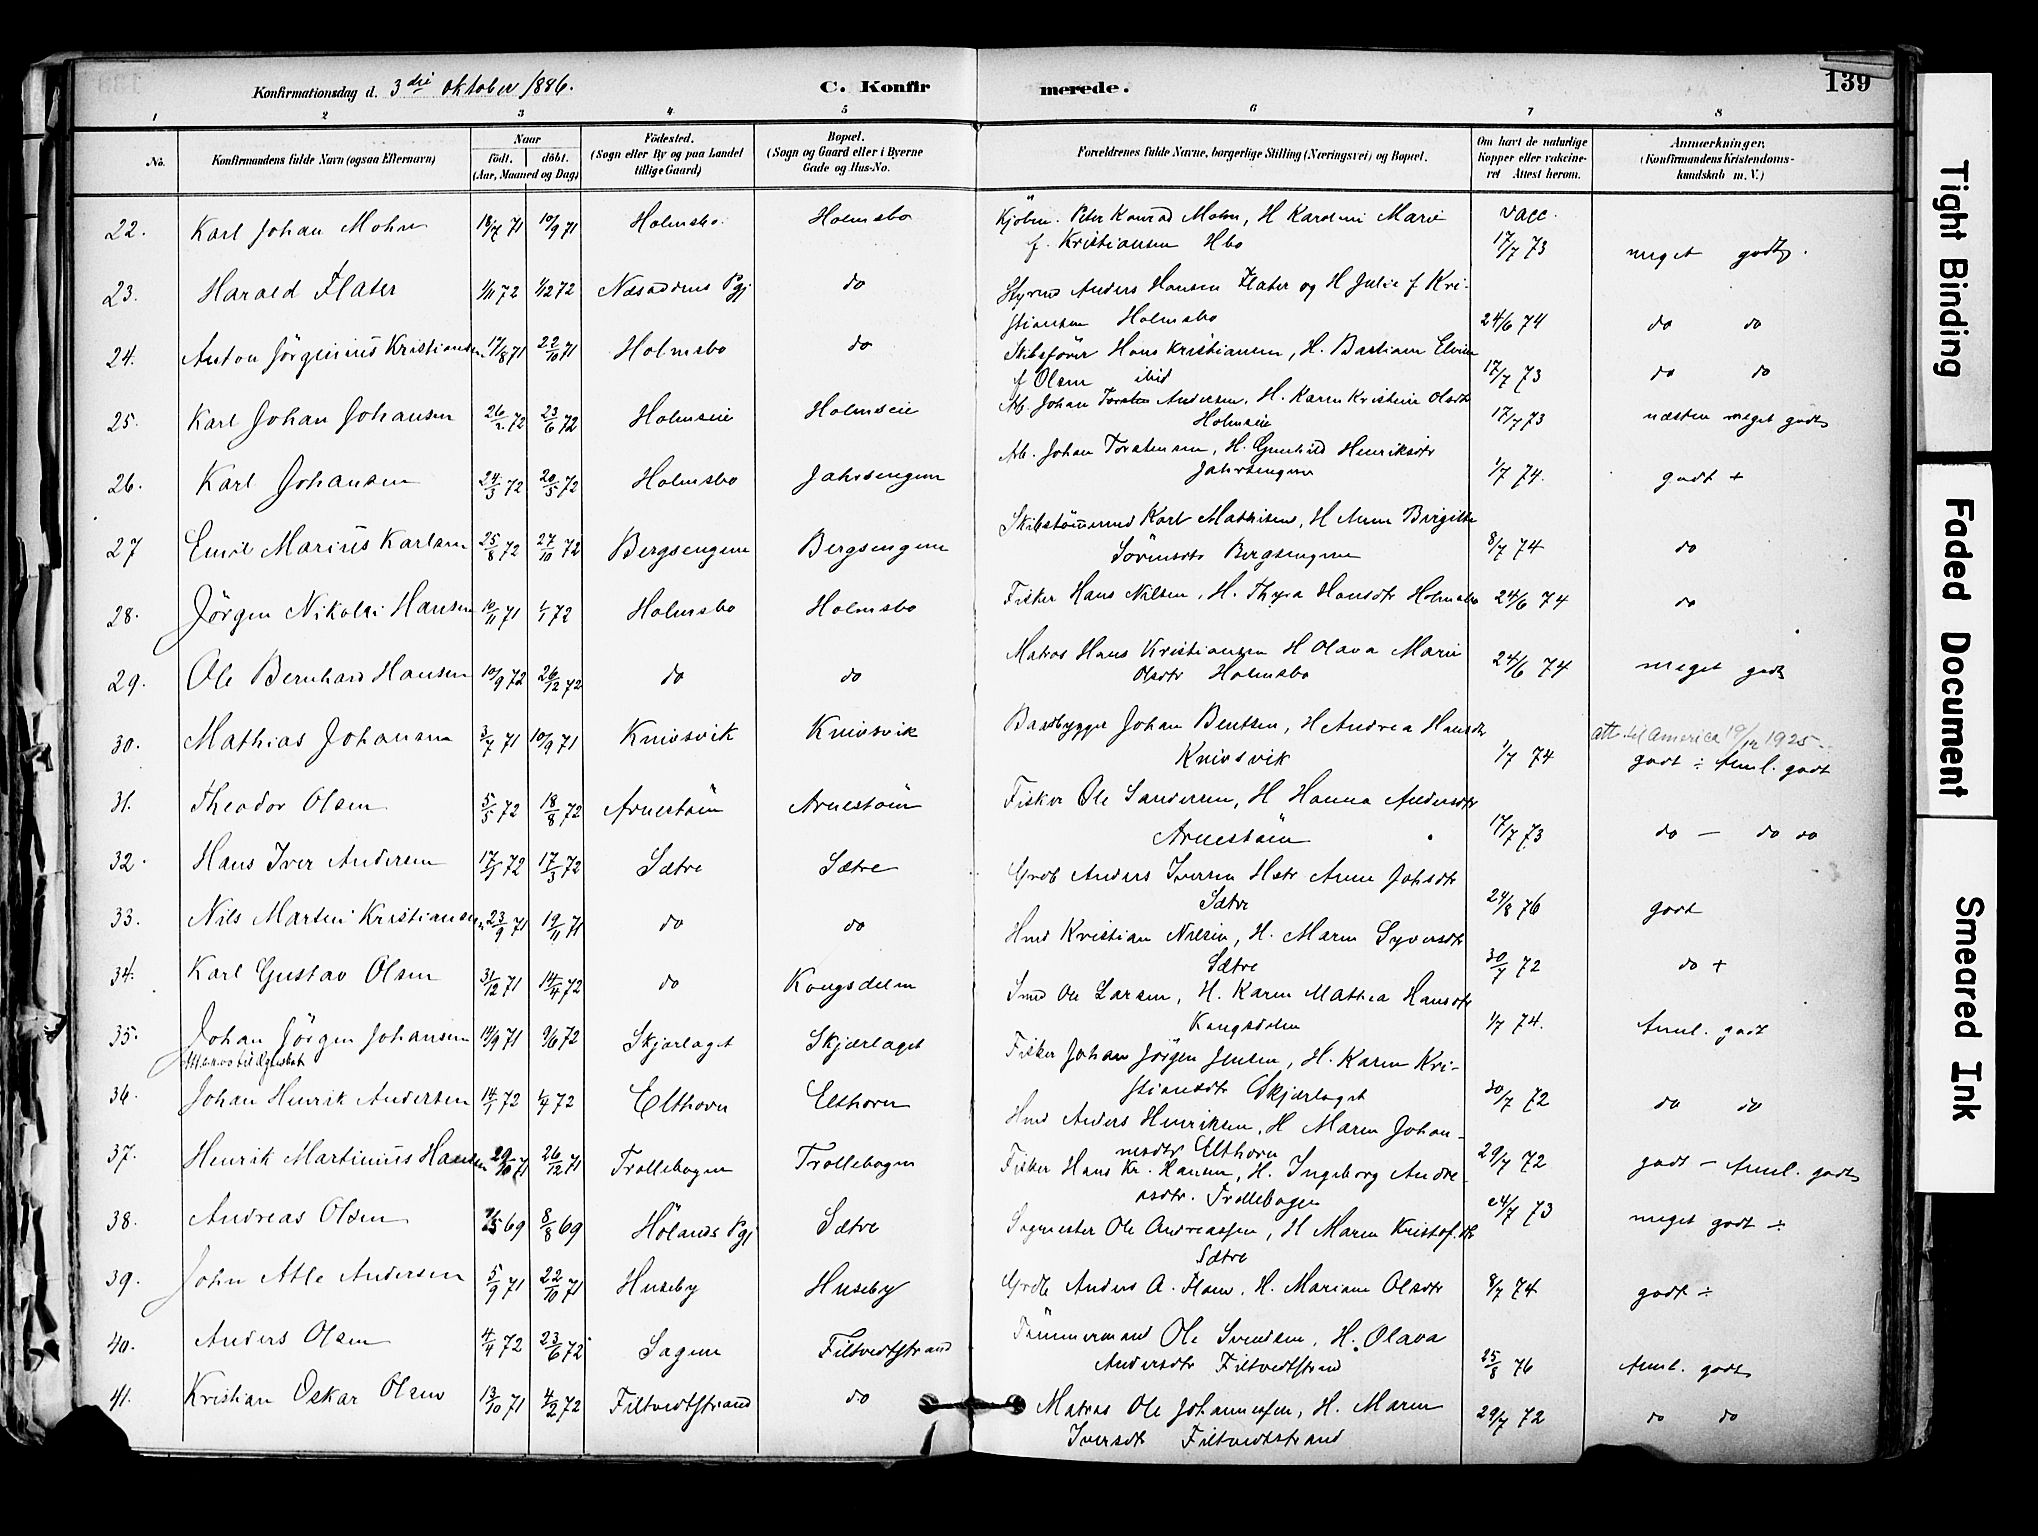 Konfirmationsdag d. 3die Oktober 1886.
C. Konfirmerede.
139
1 2 3 4 5 6 7 8
No. Konfirmandens fulde Navn (ogsaa Efternavn) Naar født. døbt. (Aar, Maaned og Dag) Födested. (Sogn eller By og paa Landet tillige Gaard) Bopæl. (Sogn og Gaard eller i Byerne Gade og Hus-No. Forældrenes fulde Navne, borgerlige Stilling (Næringsvei) og Bopæl. Om havt de naturlige Kopper eller vaccineret Attest herom. Anmærkninger, (Konfirmandens Kristendomskundskab m. V.)
22. Karl Johan Mohn 18/7 71 10/9 71 Holmsbo. Holmsbo Kjöbm. Peter Konrad Mohn, H Karoline Marie vacc.
f. Kristiansen Hbo 17/7 73 meget godt.
23. Harald Flater 1/11 72 1/12 72 Næsoddens Pgj do Styrmd Anders Hansen Flater og H Julie f Kri-
stiansen Holmsbo 24/6 74 do do
24. Anton Jörginius Kristiansen 17/8 71 22/10 71 Holmsbo do Skibsförer Hans Kristiansen, H. Bastiane Elvine
f Olsen ibid 17/7 73 do do
25. Karl Johan Johansen 26/2 72 23/6 72 Holmseie Holmseie Arb. Johan Andersen, H. Karen Kristine Olsdtr
Holmseie 17/7 73 næsten meget godt
26. Karl Johansen 24/3 72 20/5 72 Holmsbo Jahrsengen Arb. Johan Torstensen, H. Gunhild Henriksdtr
Jahrsengen 1/7 74. godt +
27 Emil Marius Karlsen 25/8 72 27/10 72 Bergsengen Bergsengen Skibstömmermd Karl Mathisen, H Anne Birgitte
Sörensdtr Bergsengen 8/7 74 do
28. Jörgen Nikolai Hansen 10/11 71 1/1 72 Holmsbo Holmsbo Fisker Hans Nilsen, H. Thyra Hansdtr Holmsbo 24/6 74 do
29. Ole Bernhard Hansen 10/9 72 26/12 72 do do Matros Hans Kristiansen H Olava Marie
Olsdtr Holmsbo 24/6 74 meget godt
30. Mathias Johansen 3/7 71 10/9 71 Knivsvik Knivsvik Baadbygger Johan Bentsen, H Andrea Hansdtr att. til America 19/12 1925
Knivsvik 1/7 74 godt ÷ Aml. godt
31. Theodor Olsen 5/5 72 18/8 72 Arnestöen Arnestöen Fisker Ole Sandersen, H Hanna Andersdtr
Arnestöen 17/7 73 do — do do
32. Hans Iver Andersen 17/1 72 17/3 72 Sætre Sætre Grdb Anders Iversen Hstr Anne Johsdtr
Sætre 24/8 76 godt
33. Nils Martin Kristiansen 23/9 71 19/11 71 do do Hmd Kristian Nilsen, H. Maren Syversdtr
Sætre 30/7 72 do +
34. Karl Gustav Olsen 31/12 71 14/4 72 do Kongsdelen Smed Ole Larsen, H. Karen Mathea Hansdtr
Kongsdelen 1/7 74. Aml. godt
35. Johan Jörgen Johansen 14/9 71 9/6 72 Skjærlaget Skjærlaget Fisker Johan Jörgen Jensen, H. Karen Kri-
stiansdtr Skjærlaget 30/7 72 do do
36. Johan Henrik Andersen 14/1 72 1/4 72 Elthorn Elthorn Hmd Anders Henriksen, H Maren Johan-
nesdtr Elthorn 29/7 72 godt — Aml. godt
37. Henrik Martinius Hansen 29/10 71 26/12 71 Trollebogen Trollebogen Fisker Hans Kr. Hansen, H. Ingeborg Andre-
asdtr. Trollebogen 24/7 73
38. Andreas Olsen 7/5 69 8/8 69 Hölands Pgj Sætre Sagmester Ole Andreassen, H Maren Kristof.dtr meget godt ÷
Sætre
39. John Atle Andersen 5/9 71 22/10 71 Huseby Huseby Grdb Anders A. Ham, H. Mariane Olsdtr 8/7 74 godt ÷
40. Anders Olsen 4/4 72 23/6 72 Sagen Filtvedtstrand Tömmermand Ole Svendsen, H. Olava
Andersdtr Filtvedtstrand 25/8 76 Aml. godt
41. Kristian Oskar Olsen 13/10 71 4/2 72 Filtvedtstrand do Matros Ole Johannesen, H. Maren
Iversdtr Filtvedtstrand 29/7 72 do do
Tight Binding
Faded Document
Smeared Ink